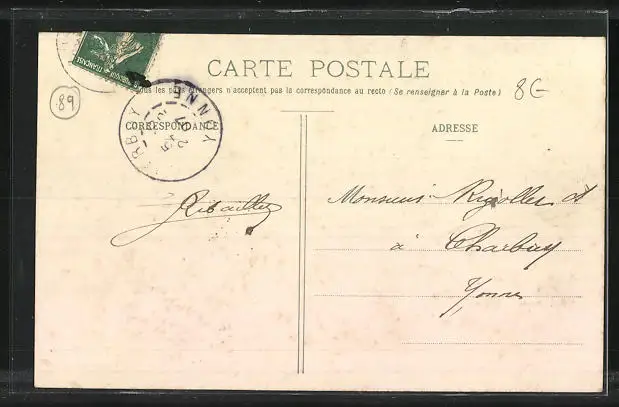 CARTE POSTALE
Tous les pays étrangers n'acceptent pas la correspondance au recto (Se renseigner à la Poste)
89
8G
CORRESPONDANCE
ADRESSE
YONNE
Ribaillier
Monsieur Rigollet
à Charbuy
Yonne